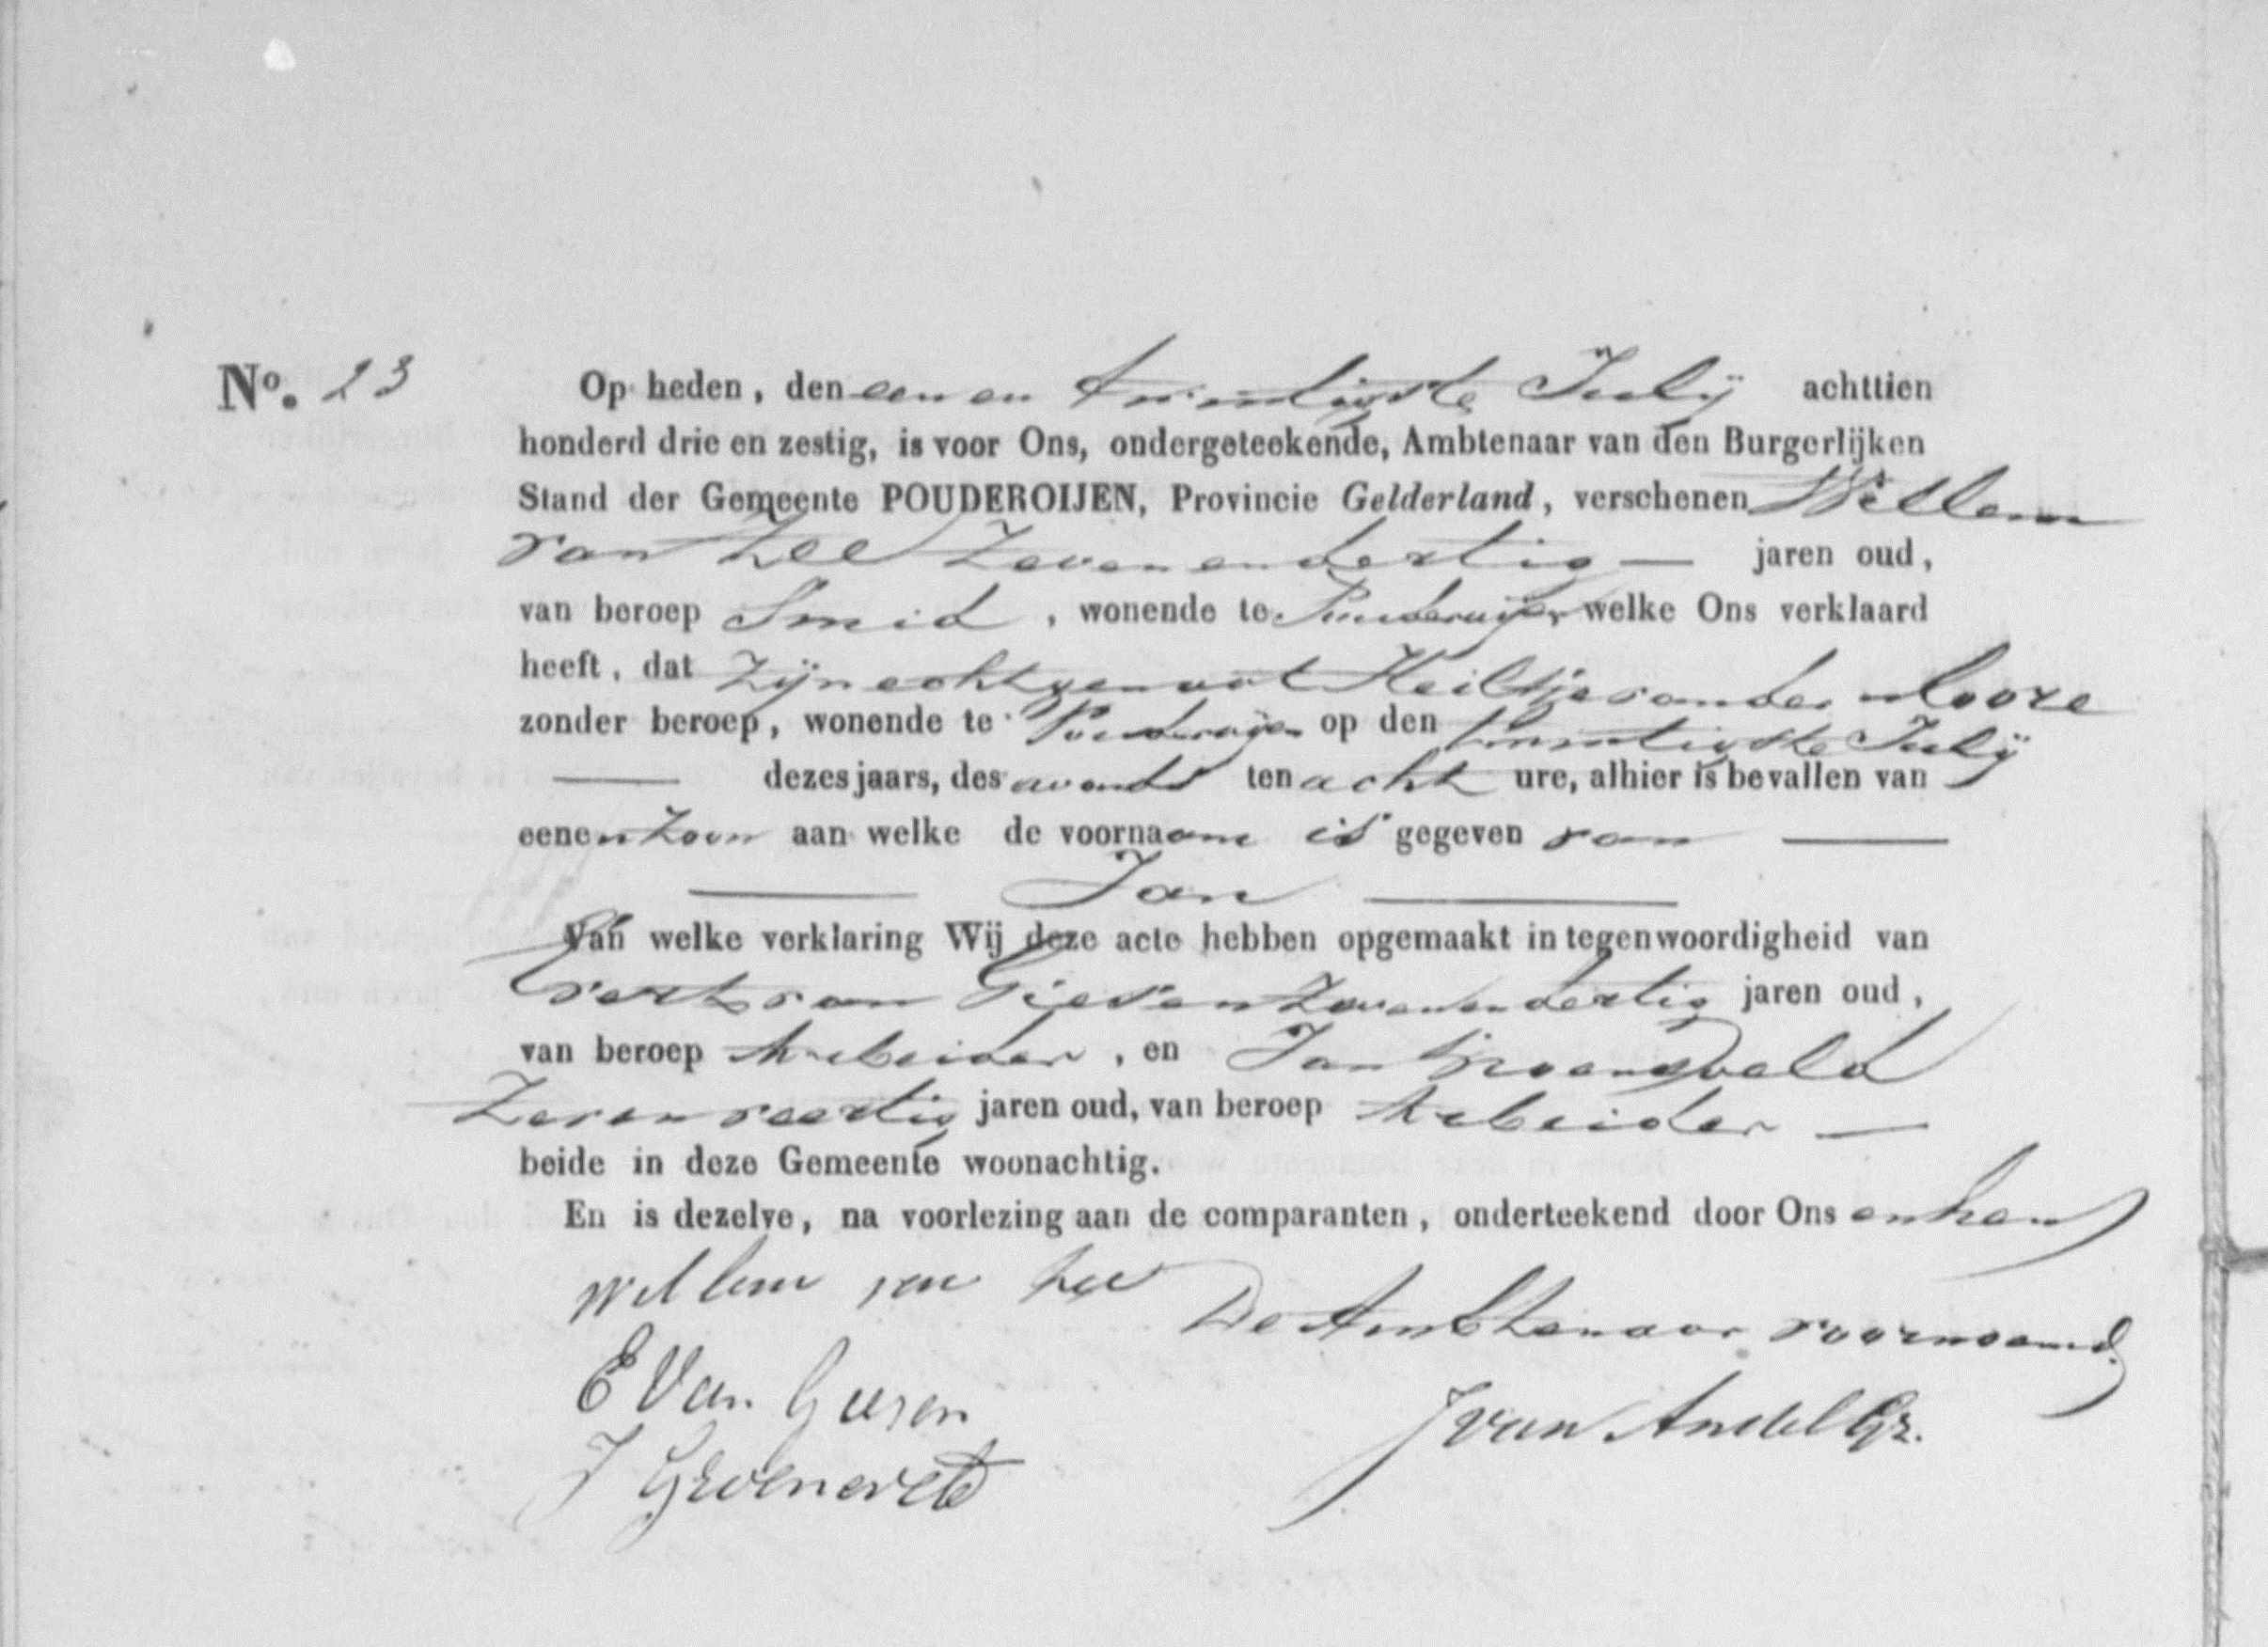 No. 23 Op heden, den een en twintigste Julij achttien
honderd drie en zestig, is voor Ons, ondergeteekende, Ambtenaar van den Burgerlijken
Stand der Gemeente POUDEROIJEN, Provincie Gelderland, verschenen Willem
van Zee Zeven en dertig — jaren oud,
van beroep Smid, wonende te Pouderoijen welke Ons verklaard
heeft, dat Zijn echtgenoot Heiltje van der Moore
zonder beroep, wonende te Pouderoijen op den twintigste Julij
— dezes jaars, des avonds ten acht ure, alhier is bevallen van
eenen Zoon aan welke de voornaam is gegeven van —
— Jan —
Van welke verklaring Wij deze acte hebben opgemaakt in tegenwoordigheid van
Evert van Giesen Zeven en dertig jaren oud,
van beroep Arbeider, en Jan Groeneveld
Zeven veertig jaren oud, van beroep Arbeider —
beide in deze Gemeente woonachtig.
En is dezelve, na voorlezing aan de comparanten, onderteekend door Ons en hen
Willem van Zee
De Ambtenaar voornoemd
E Van Giesen
J van Andel Gz.
J Groeneveld